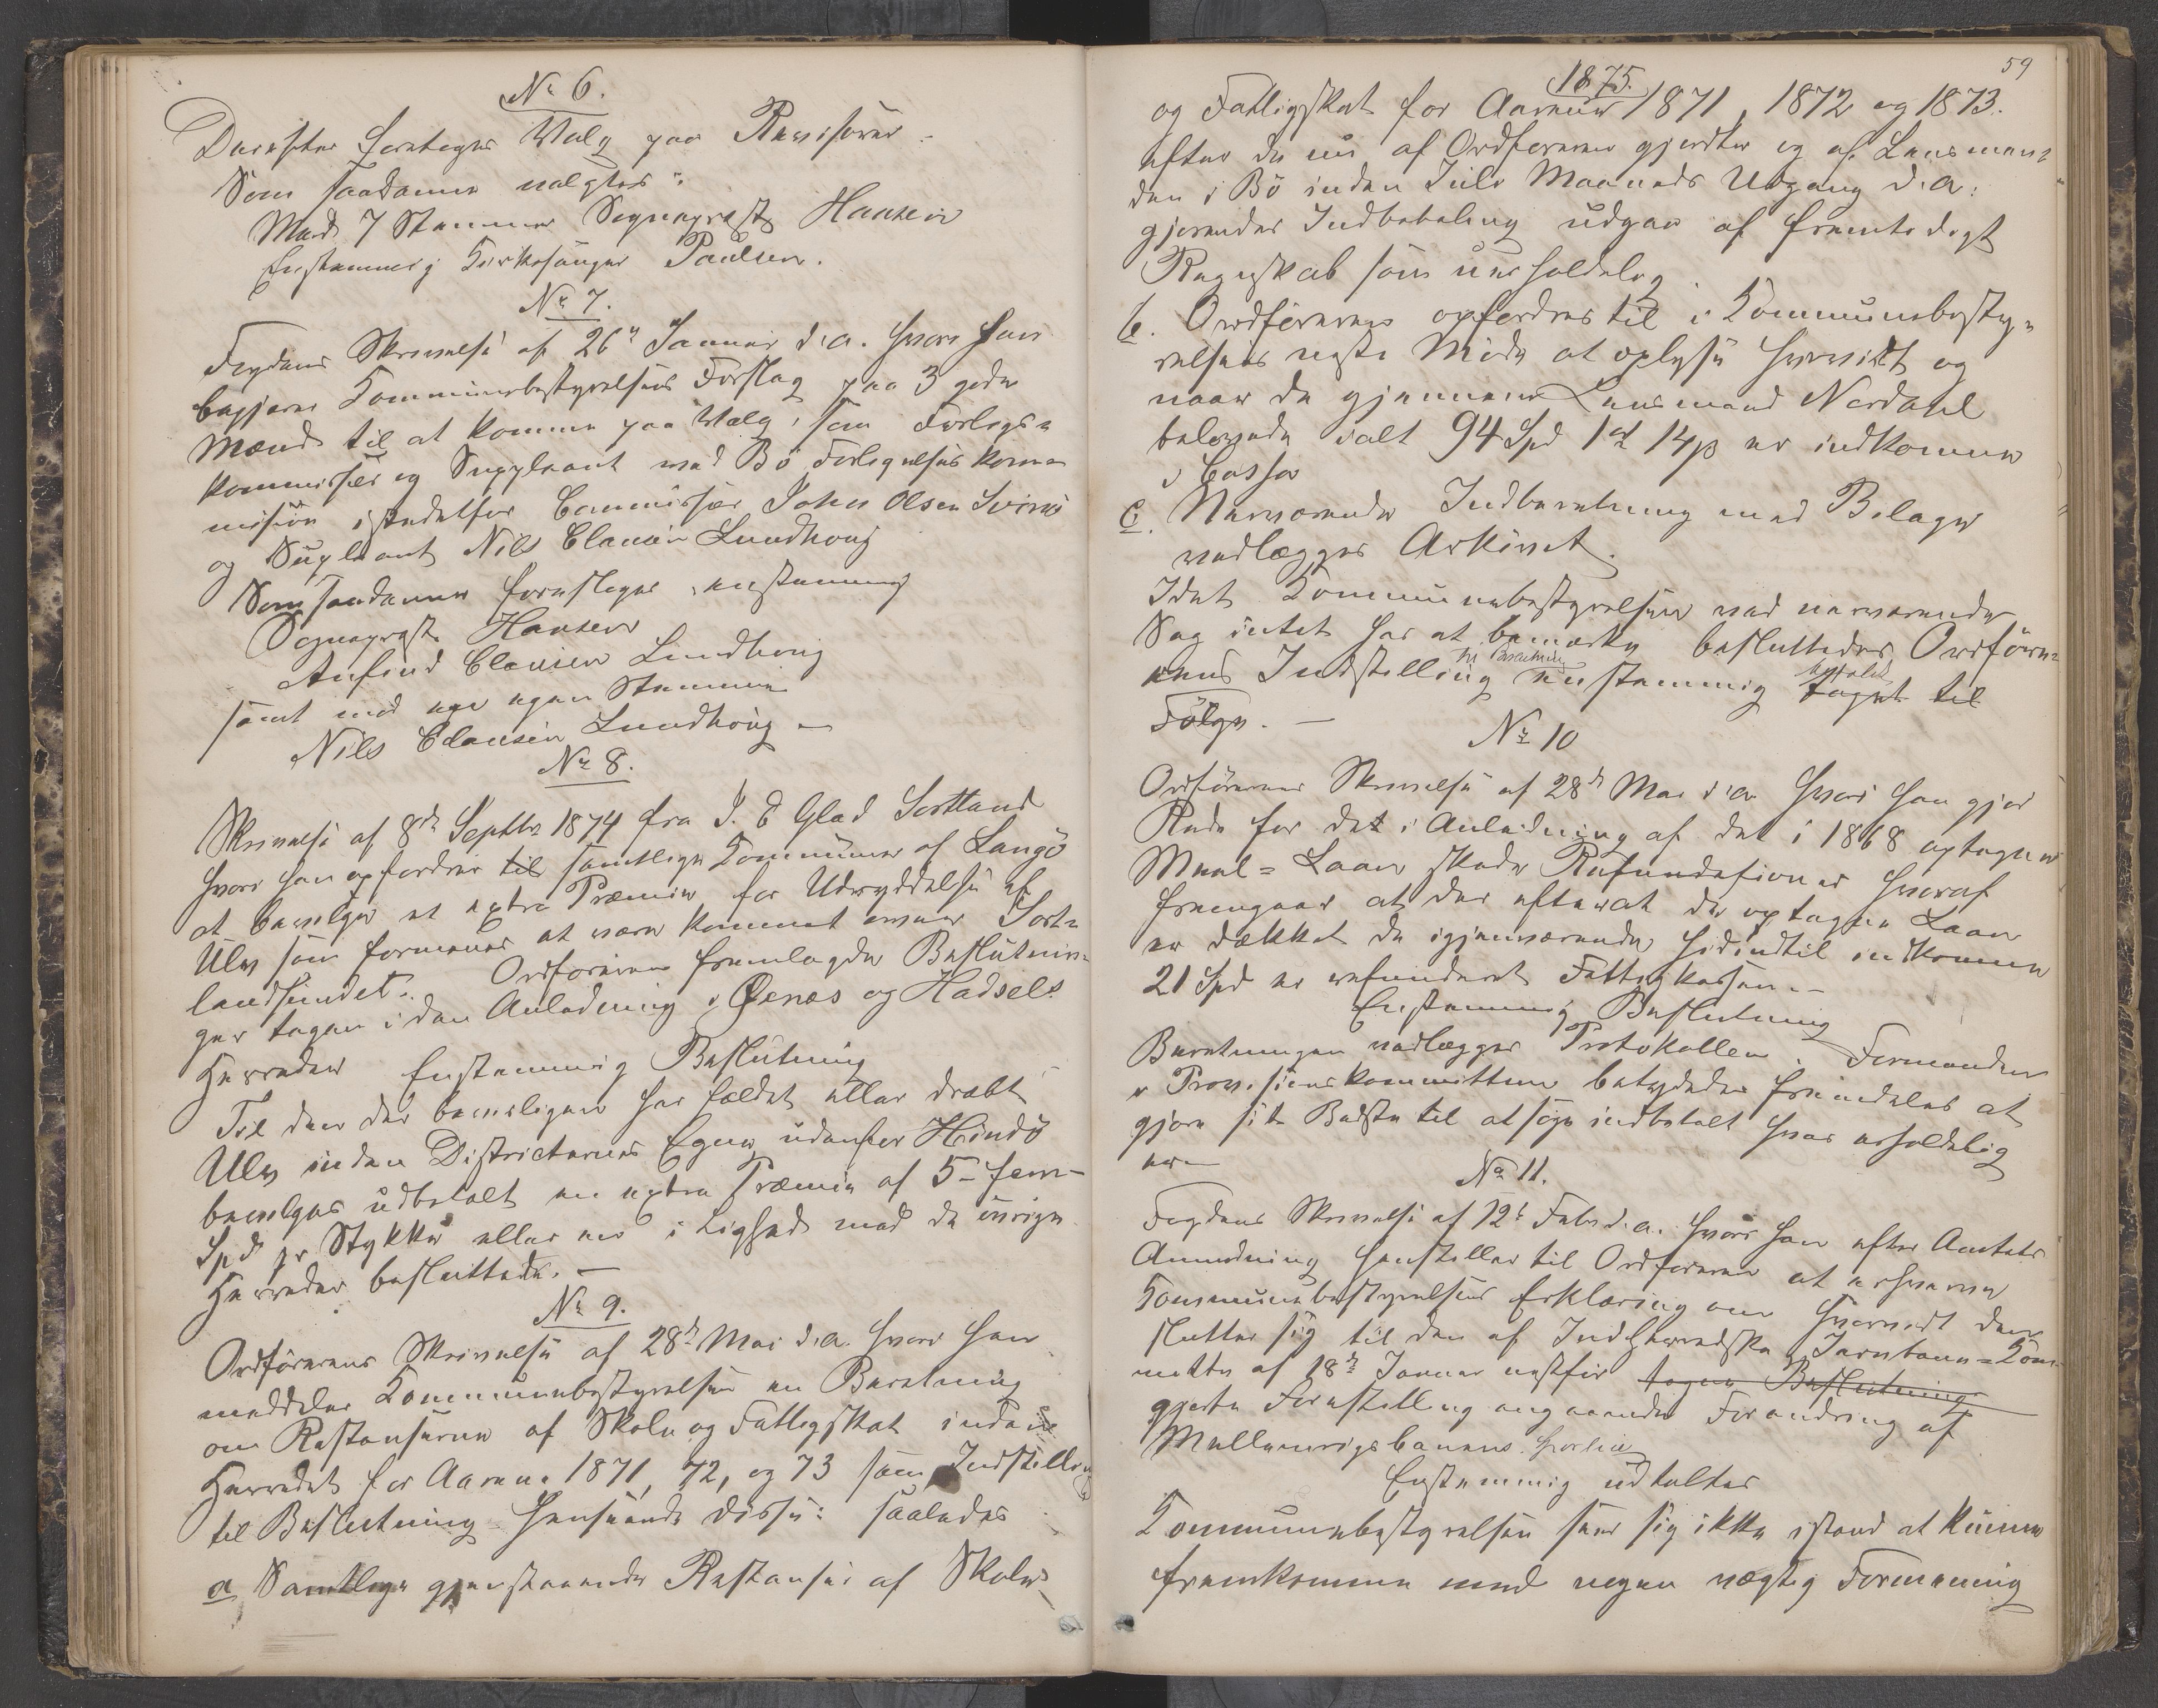 No 6.
Derefter foretoges Valg paa Revisorer.
Som saadanne valgtes:
Med 7 Stemmer Sogneprest Hansen
Enstemmig Kirkesanger Paulsen.
No 7.
Fogdens Skrivelse af 26de Januar d.a. hvori han
begjerer Kommunebestyrelsens Forslag paa 3 gode
Mænd til at komme paa Valg som Forligs-
kommissær og Suppleant ved Bö Forligelseskom-
mission istedetfor Commissær Johan Olsen
og Supleant Nils Clausen Lundhoug
Som saadanne foresloges enstemmig
Sogneprest Hansen
Anfind Clausen Lundhoug
samt med egen Stemme
Nils Clausen Lundhoug —
No 8.
Skrivelse af 8de Septbr 1874 fra J. Glad Sortland
hvori han opfordrer til samtlige Kommuner af Langö
at bevilge et extra Præmie for Udryddelse af
Ulv som formenes at være kommet over Sort-
landsundet. Ordføreren fremlagde Beslutnin-
ger tagen i den Anledning i Öxnes og Hadsels
Herreder Enstemmig Beslutning
Til den der beviseligen har fældet eller dræbt
Ulv inden Districternes Egne udenfor Hindö
bevilges udbetalt en extra Præmie af 5 - fem -
Spd pr Stykke eller er i Lighed med de övrige
Herreder besluttede. —
No 9.
Ordførerens Skrivelse af 28de Mai d.a. hvori han
meddeler Kommunebestyrelsen en Beretning
om Restanserne af Skole og Fattigskat inden
Herredet for Aarene 1871, 72, og 73 som Indstilling
til Beslutning Henseende disse: saaledes
a Samtlige gjenstaaende Restanser af Skole-
59
1875.
og Fattigskat for Aarene 1871, 1872 og 1873.
efter de nu af Ordføreren gjordte og af Lensman-
den i Bö inden Juli Maaneds Udgang d.a.
gjørendes Indbetaling udgaar af fremtidigt
Regnskab som uerholdelig.
b. Ordføreren opfordres til i Kommunebesty-
relsens neste Møde at oplyse hvorvidt og
naar de gjennem Lensmand Nordahl
beløbende ialt 94 Spd 1 ort 14 ß er indkomne
i Cassa
c. Nærværende Indberetning med Bilage
vedlægges Arkivet.
Idet Kommunebestyrelsen ved nærværende
Sag intet har at bemærke besluttedes Ordföre-
rens Indstilling til Beslutning enstemmig taget til
Følge. —
No 10
Ordförerens Skrivelse af 28de Mai d.a. hvori han gjør
Rede for det i Anledning af det i 1868 optagne
Meel-Laan skede Refundasioner hvoraf
fremgaar at der efterat det optagne Laan
er dækket de igjenværende hidindtil indkomne
21 Spd er refunderet Fattigkassen. —
Enstemmig Beslutning
Beretningen vedlægges Protokollen. Formanden
i Provisionskommitteen betydedes fremdeles at
gjøre sit Bedste til at søge indbetalt hvad erholdelig
er —
No 11.
Fogdens Skrivelse af 12te Febr d.a. hvori han efter Amtets
Anmodning henstiller til Ordføreren at erhverve
Kommunebestyrelsens Erklæring om hvorvidt den
slutter sig til den af Indherredske Jernbane-Kom-
mitte af 18de Januar nestfør tagne Beslutning
gjorte Forestilling angaaende Forandring af
Mellemrigsbanens
Enstemmig udtaltes
Kommunebestyrelsen seer sig ikke istand at kunne
fremkomme med nogen vægtig Formening